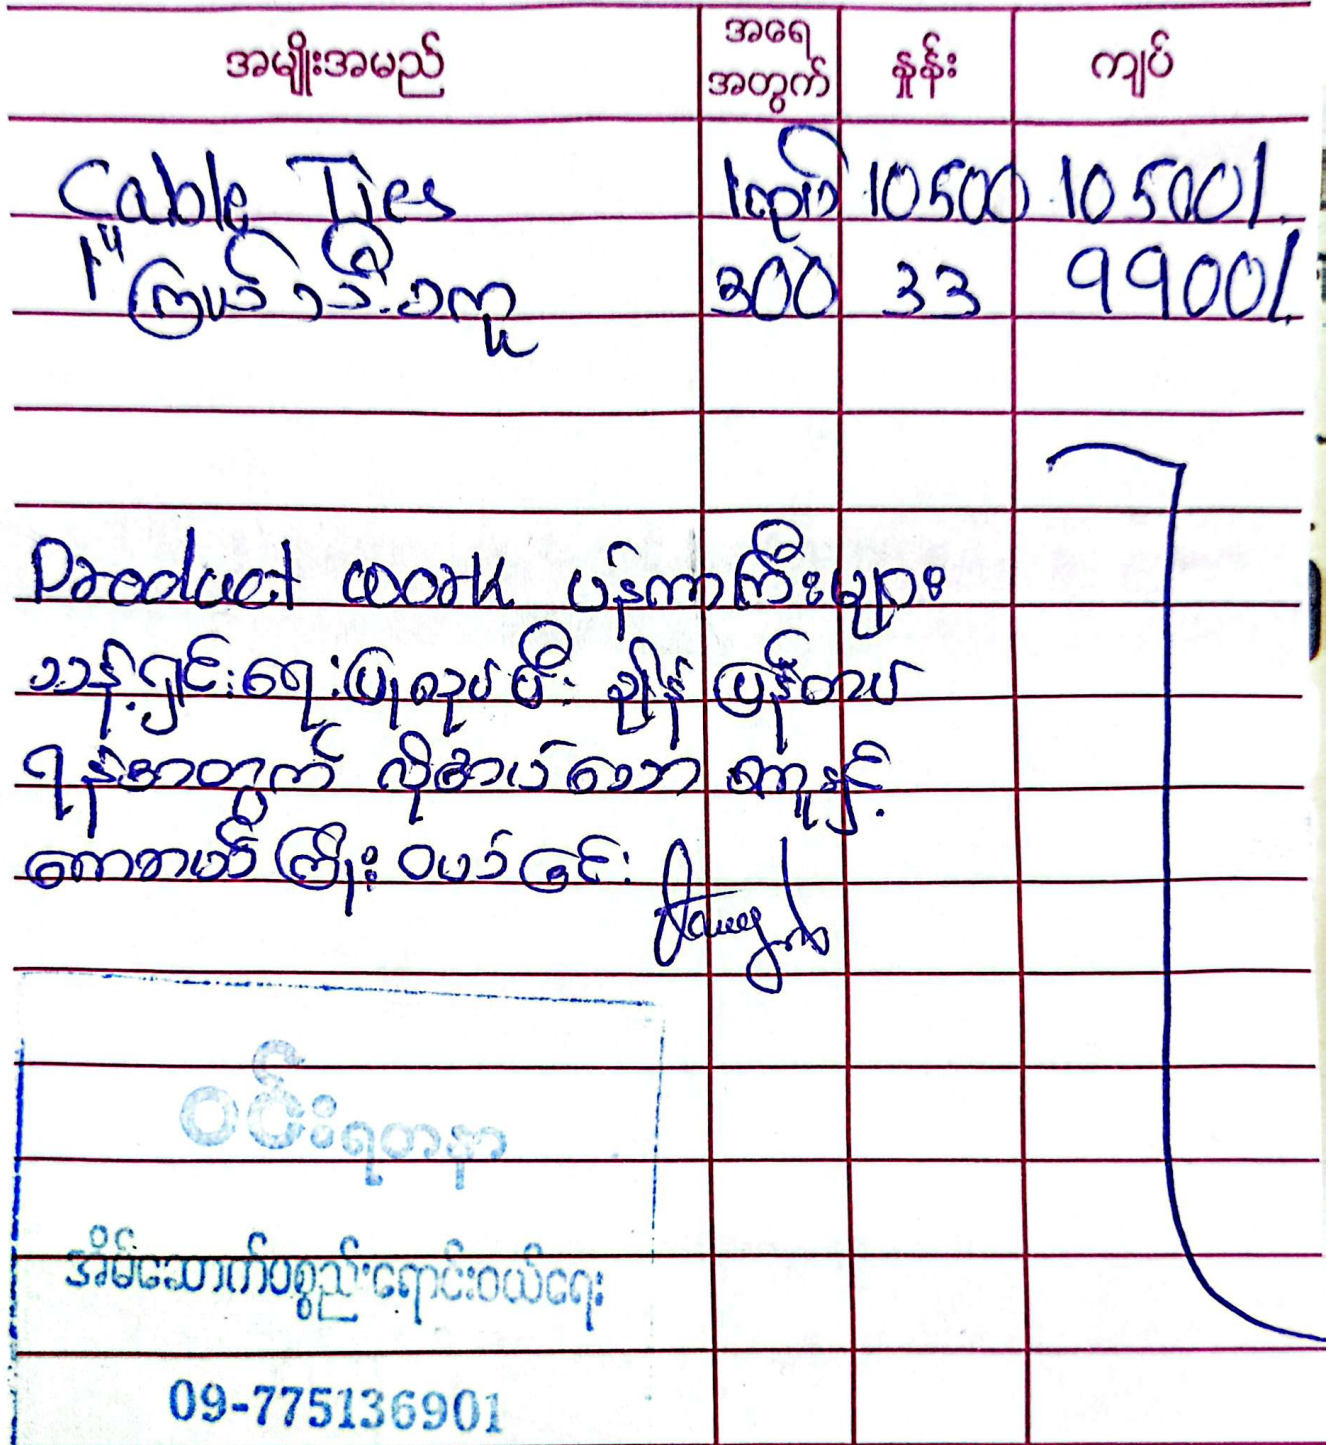 အမျိုးအမည် အရေအတွက် နှုန်း ကျပ်
Cable Ties 1ထုပ် 10500 10500/.
1" ကြယ်သီးစကူ 300 33 9900/.
Product work ပန်ကာကြီးများ
သန့်ရှင်းရေးပြုလုပ်ပြီး ချိန် ပြန်တပ်
ရန်အတွက် လိုအပ်သော စကူနှင့်
ကော်တယ်ကြိုး ဝယ်ခြင်း
ဝင်းရတနာ
အိမ်ဆောက်ပစ္စည်းရောင်းဝယ်ရေး
09-775136901